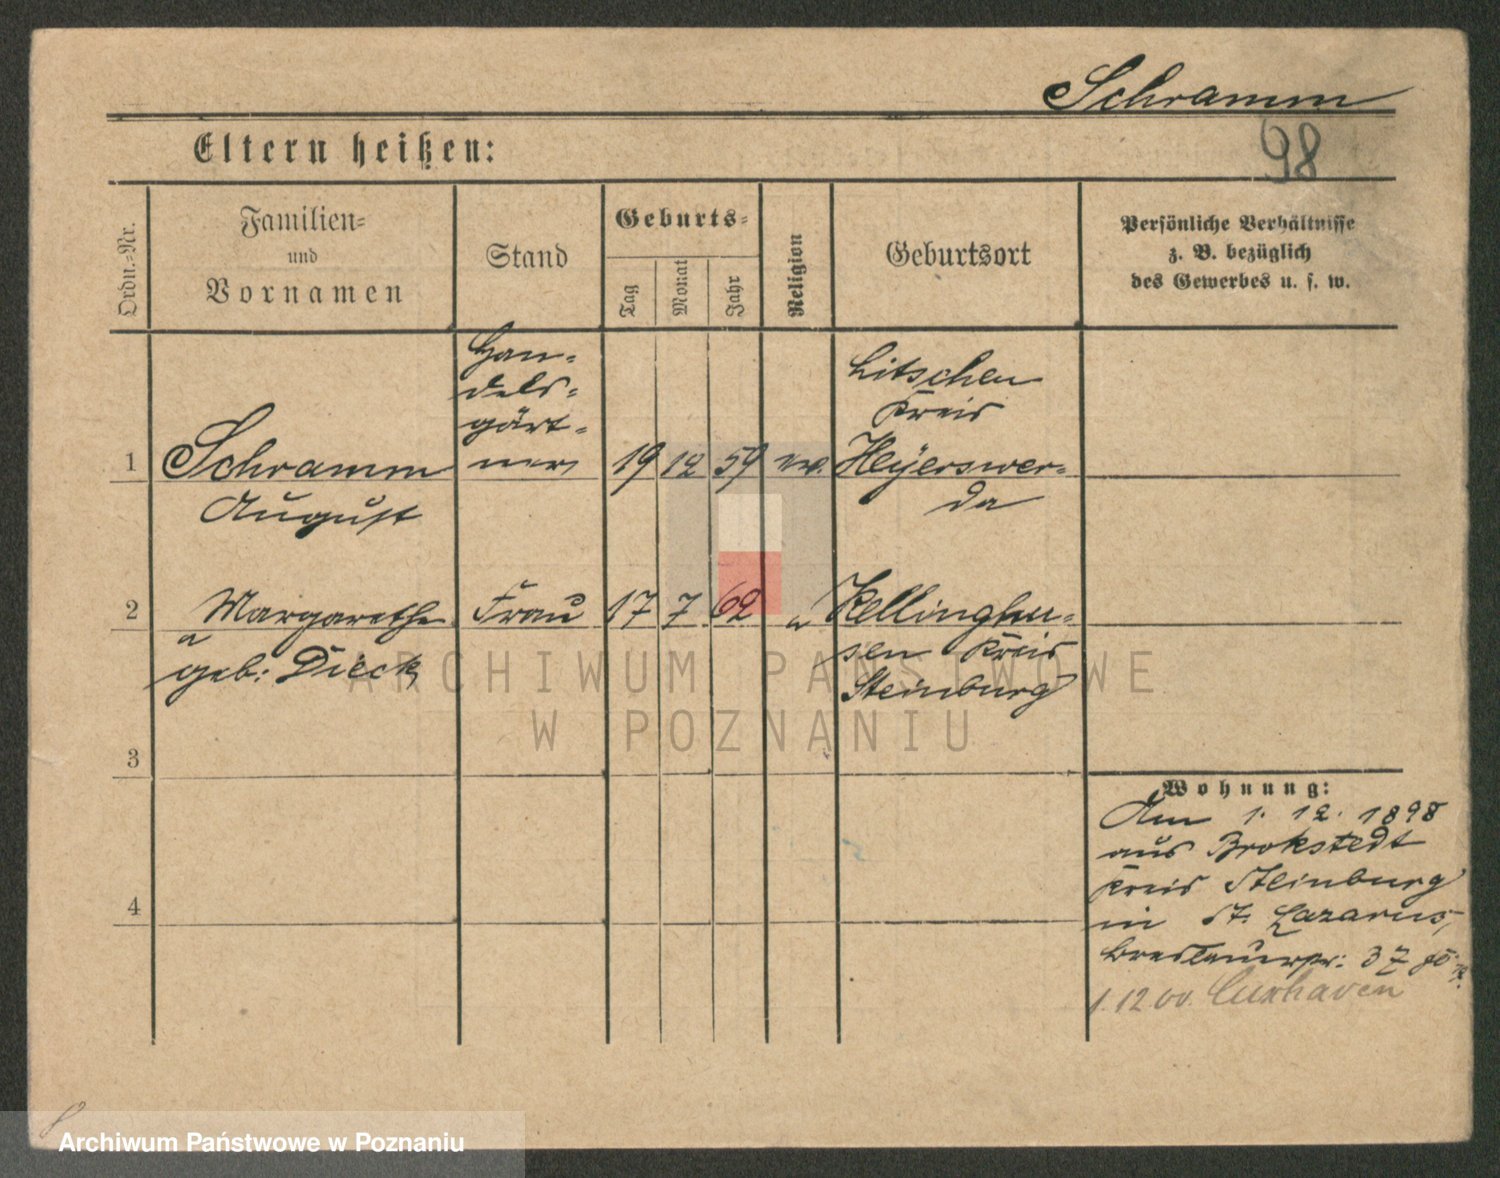 Schramm
98
Eltern heißen:
Ordn.-Nr.
Familien-
und
Vornamen
Stand
Geburts-
Tag
Monat
Jahr
Religion
Geburtsort
Persönliche Verhältnisse
z. B. bezüglich
des Gewerbes u. s. w.
1
Schramm
August
Han-
dels-
gärt-
ner
19 12 59 ev.
Litschen
Kreis
Heyerswer-
da
2
Margarethe
geb: Dieck
Frau
17 7 62 "
Kellinghu-
sen Kreis
Steinburg
3
4
Wohnung:
Am 1. 12. 1898
aus Brokstedt
Kreis Steinburg
in St. Lazarus,
Breslauerstr: 37
1.12.00. Cuxhaven
ARCHIWUM PAŃSTWOWE
W POZNANIU
Archiwum Państwowe w Poznaniu